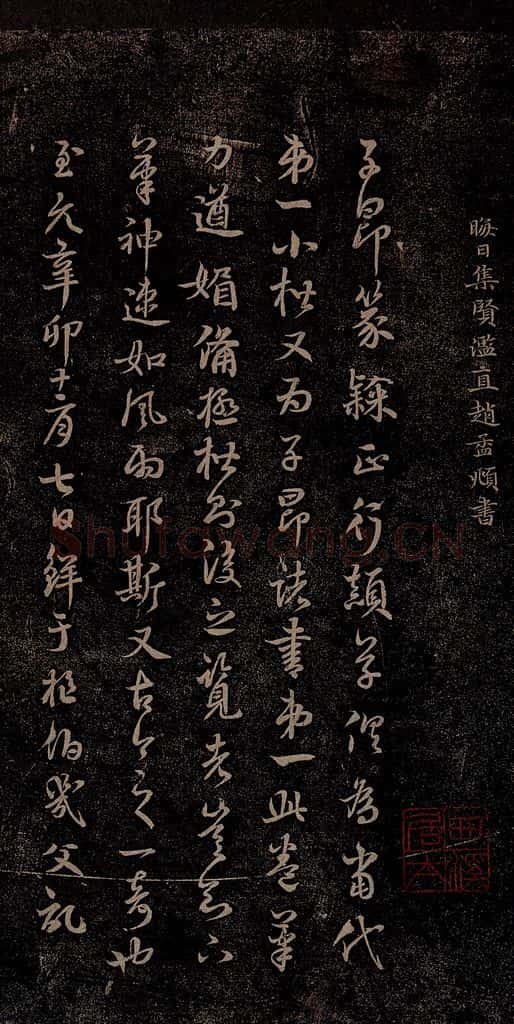 晦日集賢濫直趙孟頫書
子昂篆隸正行顛草俱為當代
第一小楷又為子昂諸書第一此卷筆
力遒媚備極楷則後之覽者豈知下
筆神速如風雨耶斯又古今之一奇也
至元辛卯十一月七日鮮于樞伯幾父記
Shufawang.CN